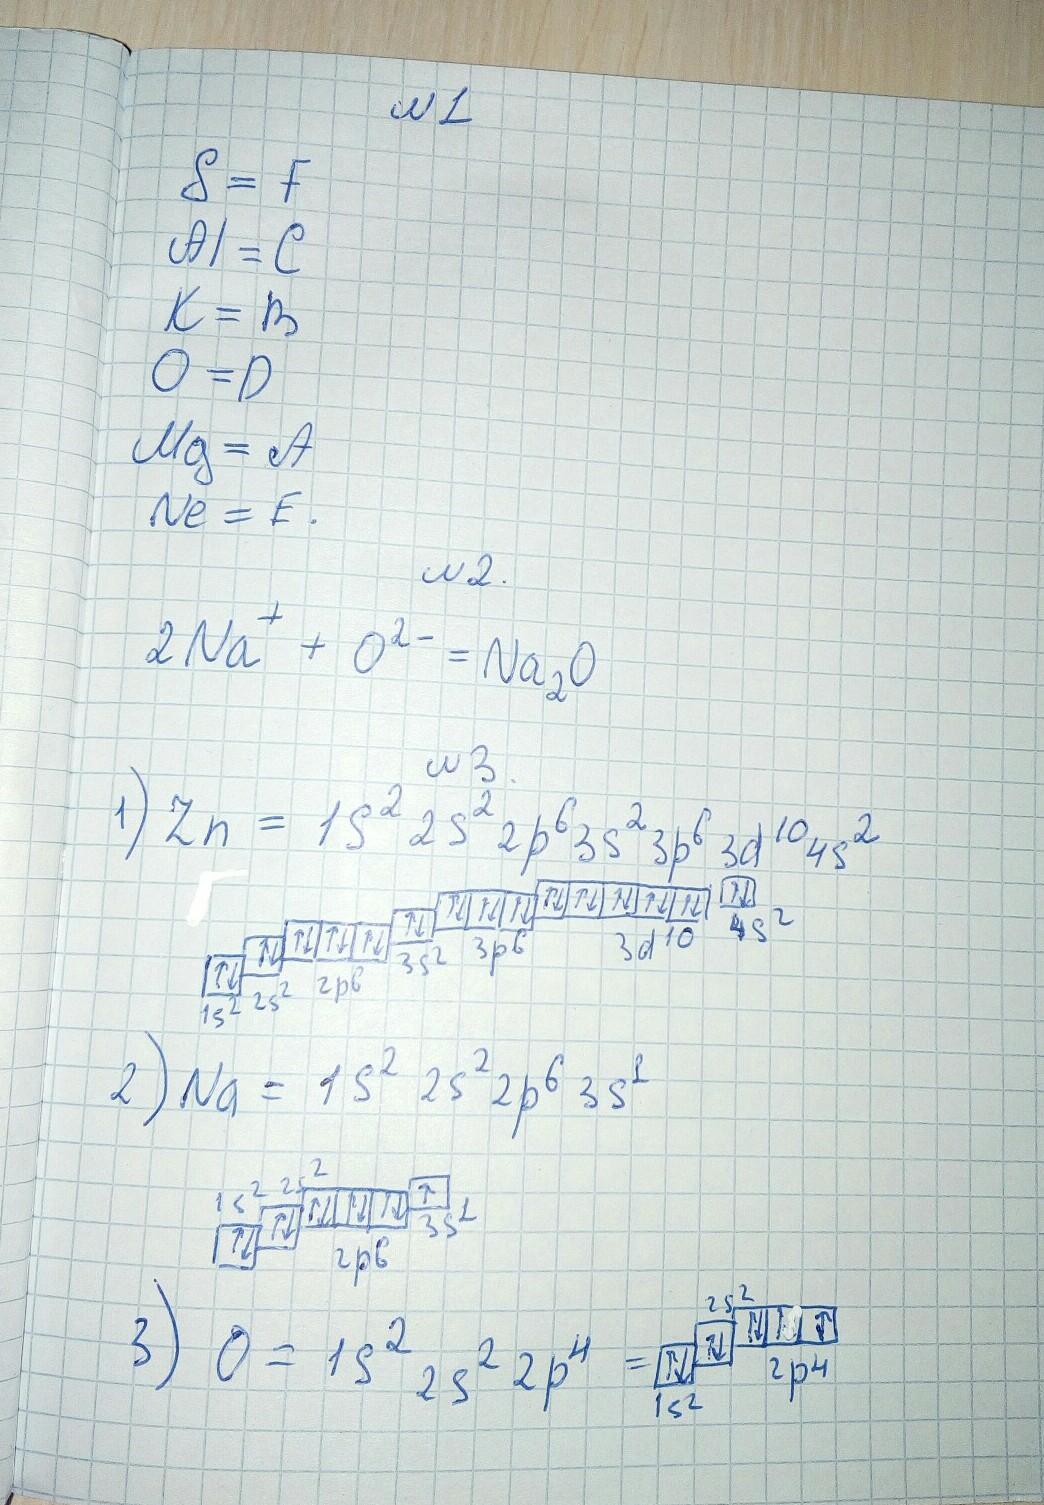 №1
S = F
Al = C
K = B
O = D
Mg = A
Ne = E.
№2.
2Na⁺ + O²⁻ = Na₂O
№3.
1) Zn = 1s² 2s² 2p⁶ 3s² 3p⁶ 3d¹⁰ 4s²
↑↓ ↑↓ ↑↓ ↑↓ ↑↓ ↑↓ ↑↓ ↑↓ ↑↓ ↑↓ ↑↓ ↑↓ ↑↓ ↑↓ ↑↓
1s² 2s² 2p6 3s² 3p⁶ 3d¹⁰ 4s²
2) Na = 1s² 2s² 2p⁶ 3s¹
1s² 2s²
↑↓ ↑↓ ↑↓ ↑↓ ↑↓ ↑
2p6 3s¹
3) O = 1s² 2s² 2p⁴ =
2s²
↑↓ ↑↓ ↑↓ ↑ ↑
1s² 2p4